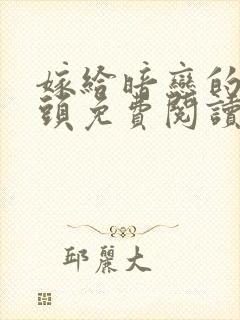 嫁給暗戀的
頭免費閱讀
邱麗大